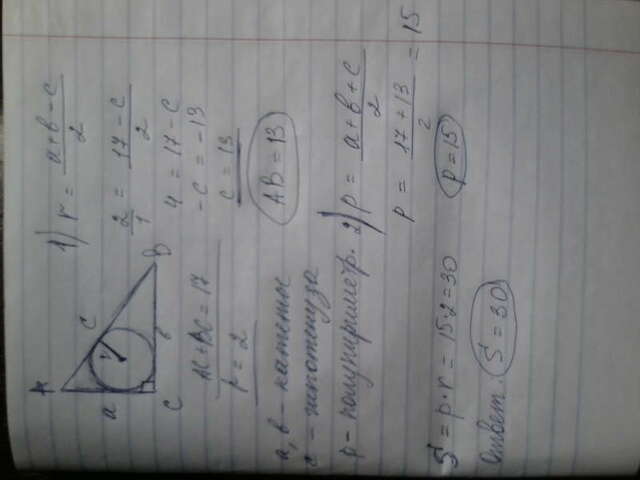 A
a
c
r
C
в
B
AC+BC = 17
r = 2
a, в – катеты
c – гипотенуза
p – полупериметр.
1) r = a+в-c / 2
2/1 = 17-c / 2
4 = 17-c
-c = -13
c = 13
AB = 13
2) p = a+в+c / 2
p = 17+13 / 2 = 15
p = 15
S = p·r = 15·2 = 30
Ответ: S = 30